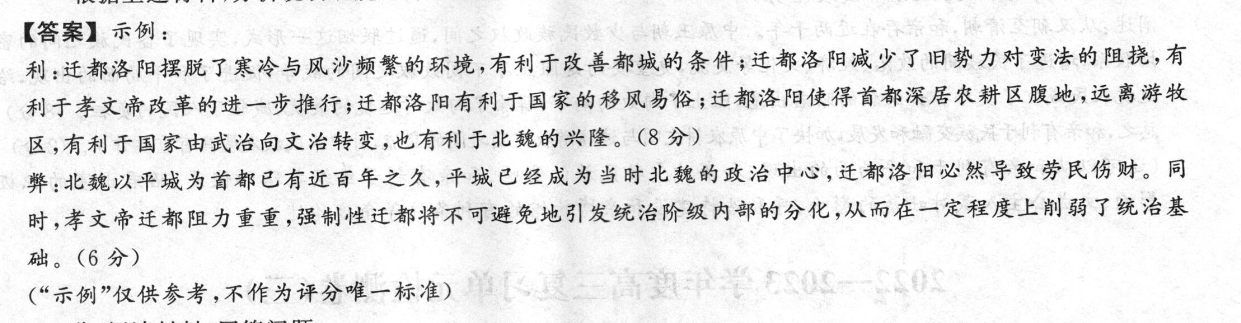 【答案】示例：
利：迁都洛阳摆脱了寒冷与风沙频繁的环境，有利于改善都城的条件；迁都洛阳减少了旧势力对变法的阻挠，有
利于孝文帝改革的进一步推行；迁都洛阳有利于国家的移风易俗；迁都洛阳使得首都深居农耕区腹地，远离游牧
区，有利于国家由武治向文治转变，也有利于北魏的兴隆。（8分）
弊：北魏以平城为首都已有近百年之久，平城已经成为当时北魏的政治中心，迁都洛阳必然导致劳民伤财。同
时，孝文帝迁都阻力重重，强制性迁都将不可避免地引发统治阶级内部的分化，从而在一定程度上削弱了统治基
础。（6分）
（“示例”仅供参考，不作为评分唯一标准）